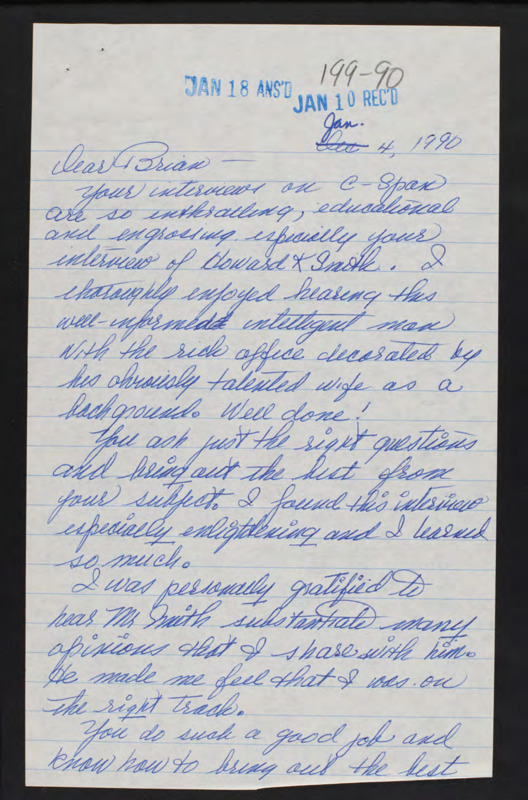 199-90
JAN 18 ANS'D
JAN 10 REC'D
Jan.
Dec 4, 1990
Dear Brian —
Your interviews on C-Span
are so enthralling, educational
and engrossing, especially your
interview of Howard K Smith. I
thoroughly enjoyed hearing this
well-informed intelligent man
with the rich office decorated by
his obviously talented wife as a
background. Well done!
You ask just the right questions
and bring out the best from
your subject. I found this interview
especially enlightening and I learned
so much.
I was personally gratified to
hear Mr Smith substantiate many
opinions that I share with him.
He made me feel that I was on
the right track.
You do such a good job and
know how to bring out the best